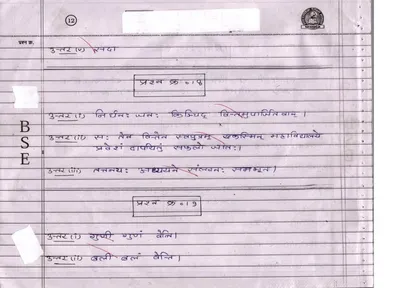 12
प्रश्न क्र.
उत्तर (v) सदा
प्रश्न क्र = 18
उत्तर (i) निर्धनः जनः किञ्चिद् वित्तमुपार्जितवान्।
B
S
E
उत्तर (ii) सः तेन वित्तेन स्वपुत्रम् एकस्मिन् महाविद्यालये
प्रवेशं दापयितुं सफलो जातः।
उत्तर (iii) तत्तनयः अध्ययने संलग्नः समभूत्।
प्रश्न क्र = 19
उत्तर (i) गुणी गुणं वेत्ति।
उत्तर (ii) बली बलं वेत्ति।